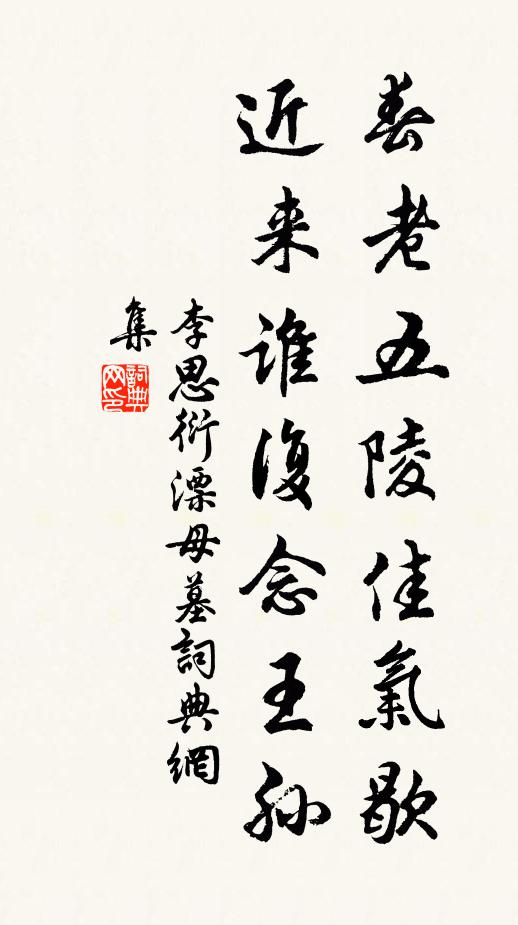 春老五陵佳氣歇
近来誰復念王孫
李思衍漂母墓詞典網
集
詞典网印